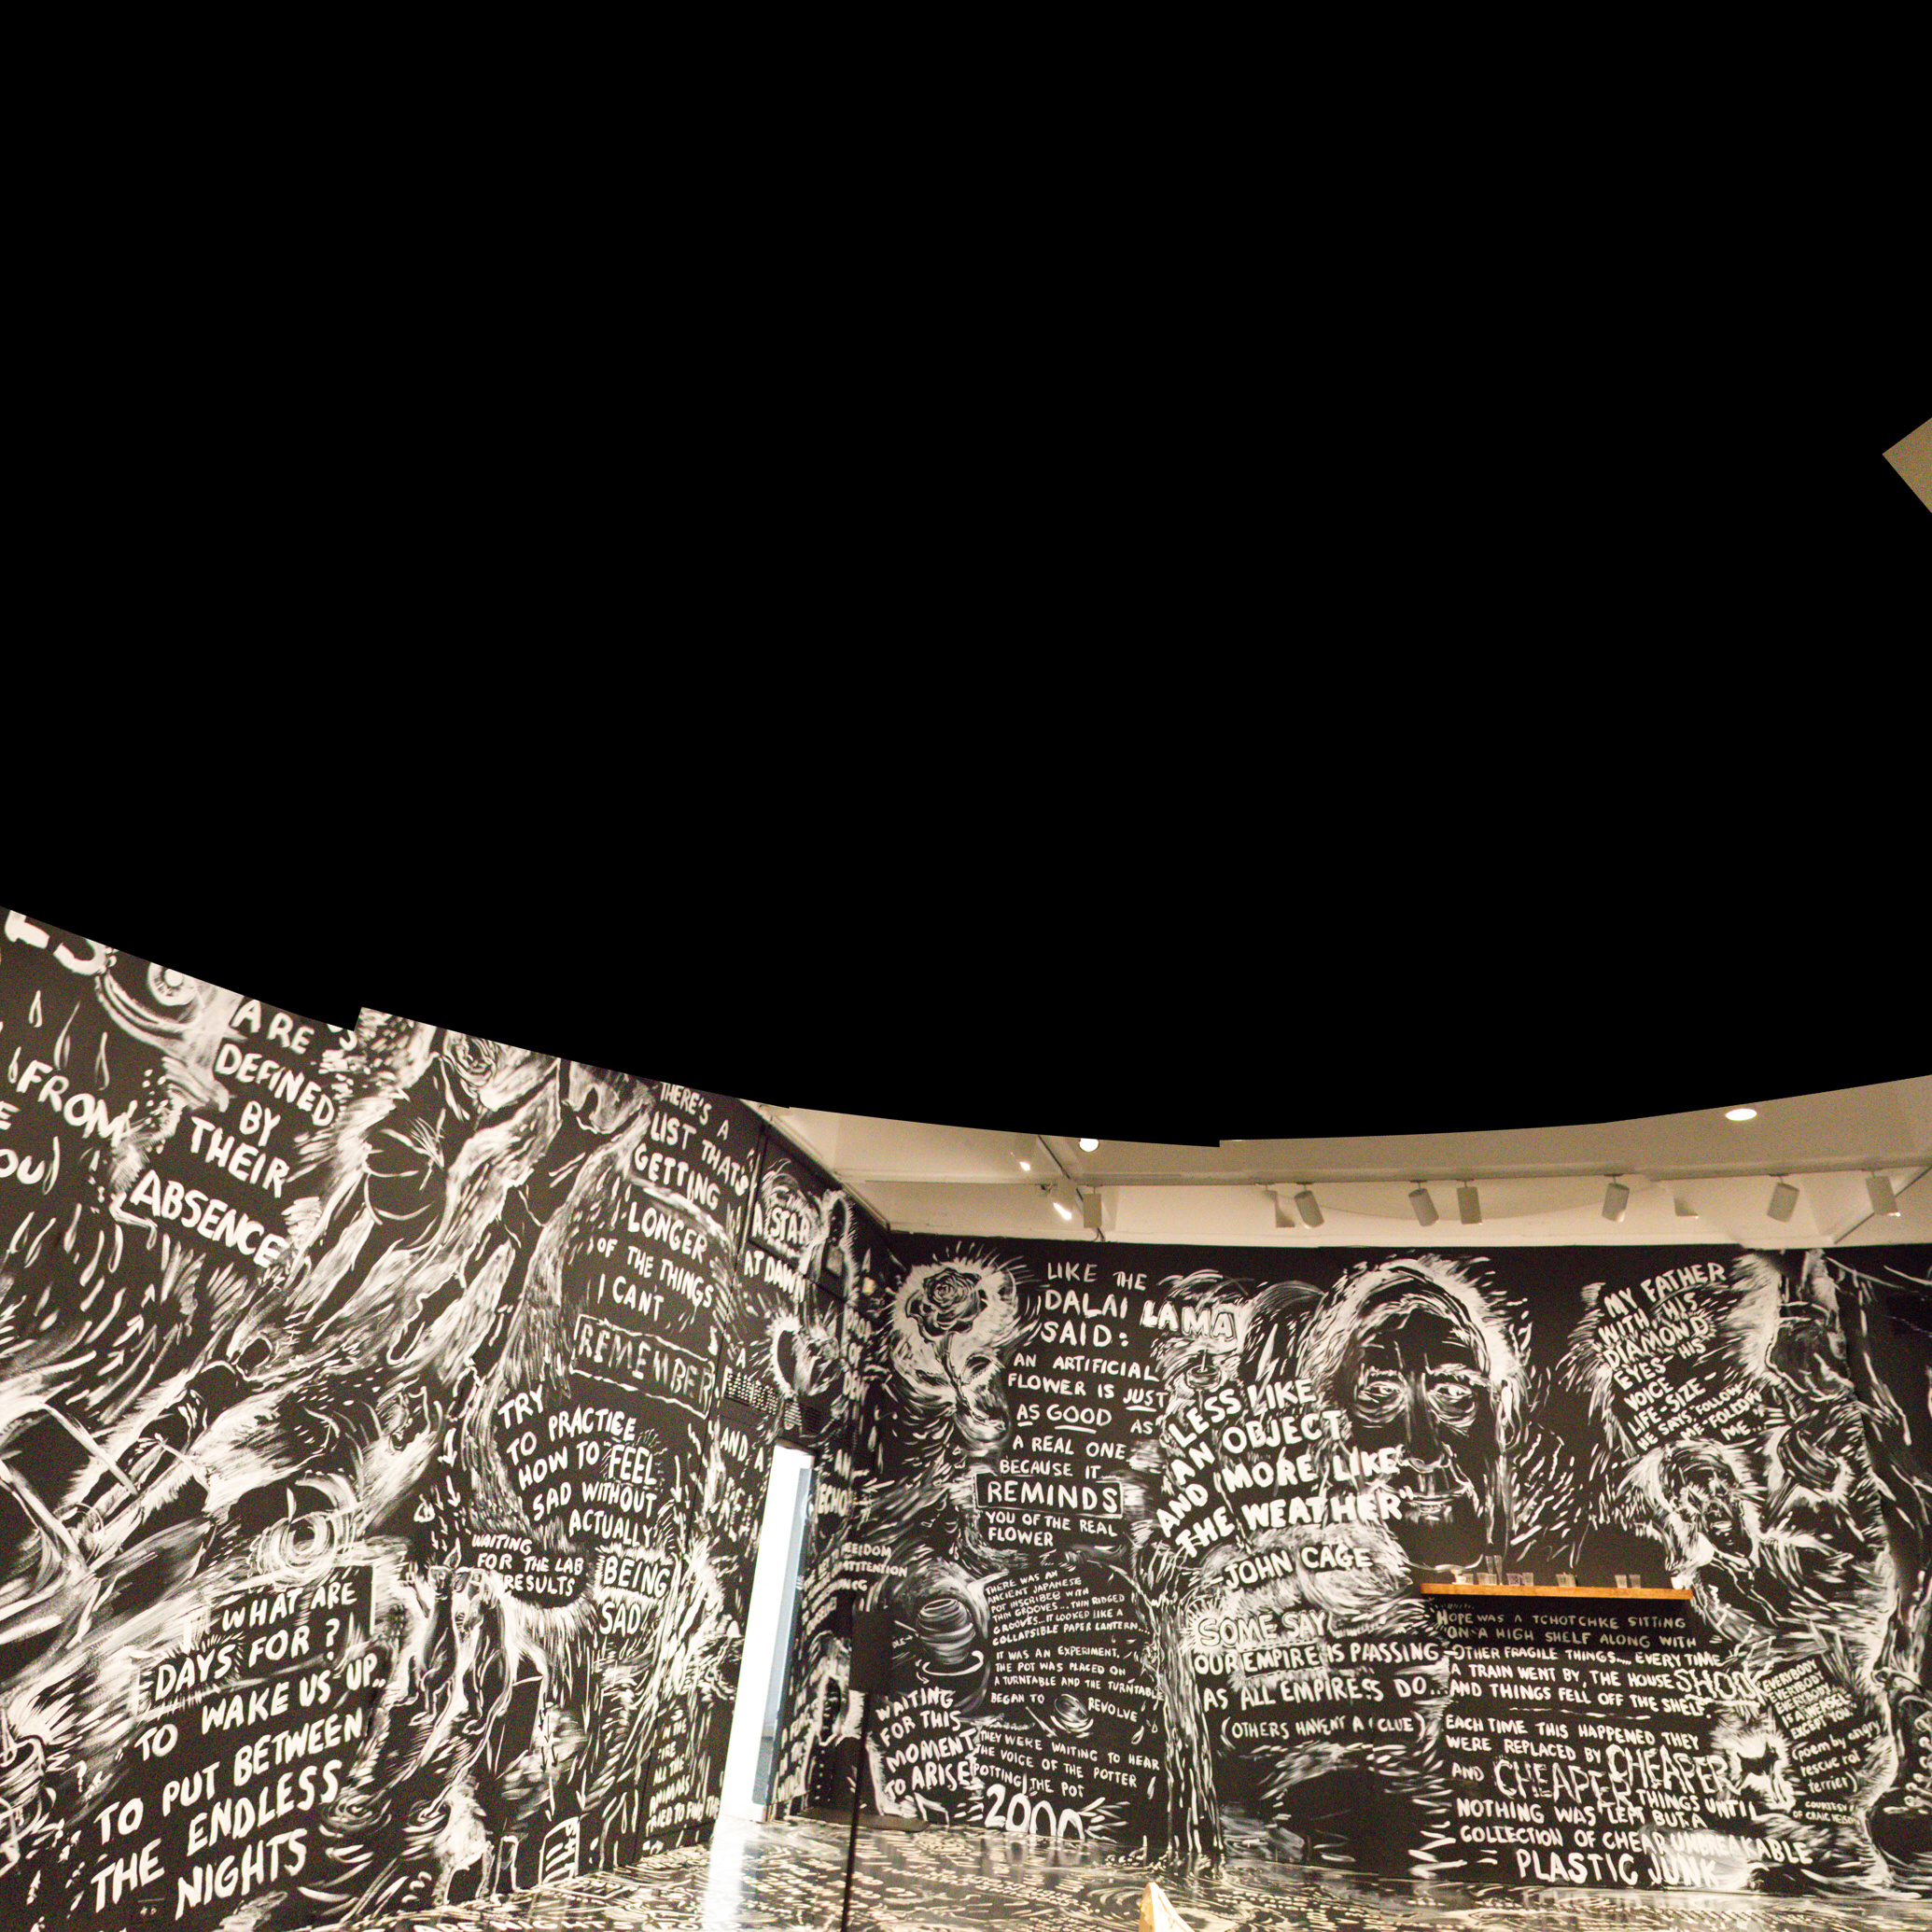 ARE
DEFINED
BY
THEIR
ABSENCE
FROM
WHAT ARE
DAYS FOR ?
TO WAKE US UP..
TO PUT BETWEEN
THE ENDLESS
NIGHTS
THERE'S A
LIST THAT'S
GETTING
LONGER
OF THE THINGS
I CANT
REMEMBER
TRY
TO PRACTICE
HOW TO FEEL
SAD WITHOUT
ACTUALLY
BEING
SAD
WAITING
FOR THE LAB
RESULTS
A STAR
AT DAWN
AND A
ECHO
LIKE THE
DALAI LAMA
SAID:
AN ARTIFICIAL
FLOWER IS JUST
AS GOOD AS
A REAL ONE
BECAUSE IT
REMINDS
YOU OF THE REAL
FLOWER
THERE WAS AN
ANCIENT JAPANESE
POT INSCRIBED WITH
THIN GROOVES...THIN RIDGED
GROOVES...IT LOOKED LIKE A
COLLAPSIBLE PAPER LANTERN...
IT WAS AN EXPERIMENT.
THE POT WAS PLACED ON
A TURNTABLE AND THE TURNTABLE
BEGAN TO REVOLVE
THEY WERE WAITING TO HEAR
THE VOICE OF THE POTTER
POTTING THE POT
2000
WAITING
FOR THIS
MOMENT
TO ARISE
"LESS LIKE
AN OBJECT
AND MORE LIKE
THE WEATHER"
JOHN CAGE
SOME SAY
OUR EMPIRE IS PASSING
AS ALL EMPIRES DO...
(OTHERS HAVEN'T A CLUE)
MY FATHER
WITH HIS
DIAMOND
EYES- HIS
VOICE
LIFE-SIZE-
HE SAYS "FOLLOW
ME- FOLLOW
ME...
HOPE WAS A TCHOTCHKE SITTING
ON A HIGH SHELF ALONG WITH
OTHER FRAGILE THINGS.... EVERY TIME
A TRAIN WENT BY, THE HOUSE SHOOK
AND THINGS FELL OFF THE SHELF.
EACH TIME THIS HAPPENED THEY
WERE REPLACED BY CHEAPER
AND CHEAPER THINGS UNTIL
NOTHING WAS LEFT BUT A
COLLECTION OF CHEAP UNBREAKABLE
PLASTIC JUNK
EVERYBODY
EVERYBODY
EVERYBODY
IS A WEASEL
EXCEPT YOU!
(poem by angry
rescue rat
terrier)